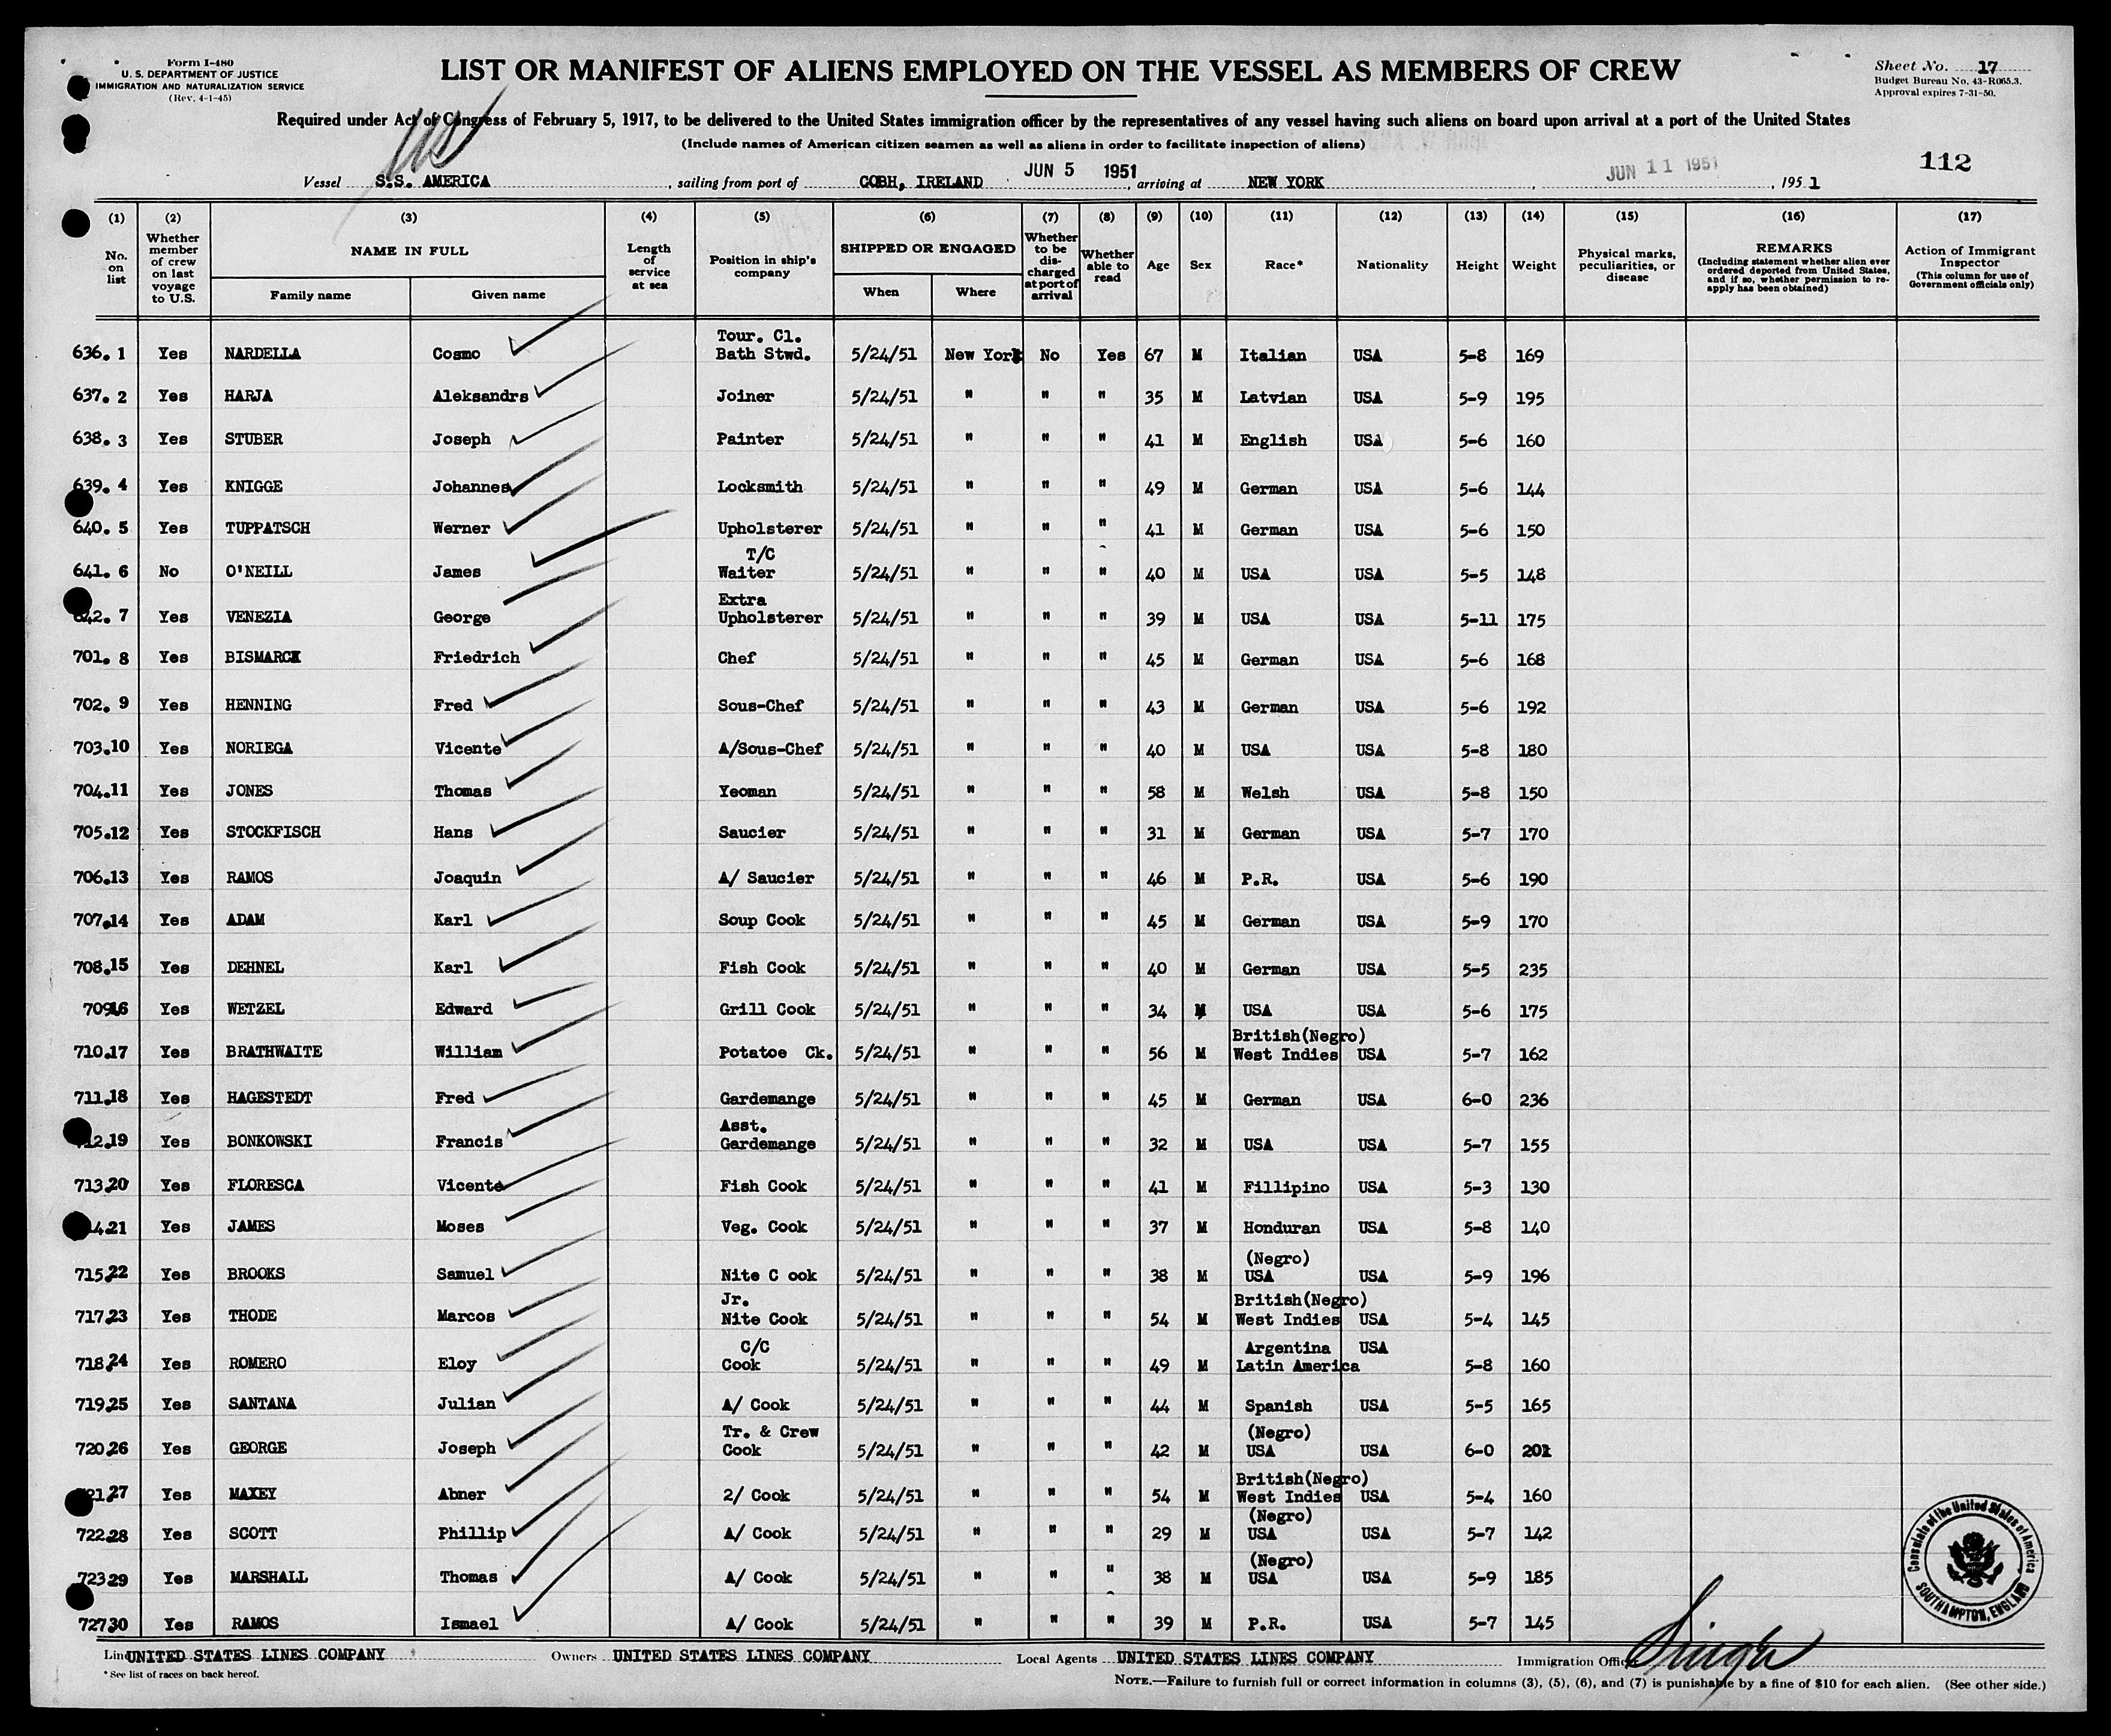 Form I-480
U. S. DEPARTMENT OF JUSTICE
IMMIGRATION AND NATURALIZATION SERVICE
(Rev. 4-1-45)
LIST OR MANIFEST OF ALIENS EMPLOYED ON THE VESSEL AS MEMBERS OF CREW
Sheet No. 17
Budget Bureau No. 43-R065.3.
Approval expires 7-31-50.
Required under Act of Congress of February 5, 1917, to be delivered to the United States immigration officer by the representatives of any vessel having such aliens on board upon arrival at a port of the United States
(Include names of American citizen seamen as well as aliens in order to facilitate inspection of aliens)
112
Vessel S.S. AMERICA, sailing from port of COBH, IRELAND JUN 5 1951, arriving at NEW YORK, JUN 11 1951, 1951
(1) (2) (3) (4) (5) (6) (7) (8) (9) (10) (11) (12) (13) (14) (15) (16) (17)
No. on list
Whether member of crew on last voyage to U.S.
NAME IN FULL
Family name
Given name
Length of service at sea
Position in ship's company
SHIPPED OR ENGAGED
When
Where
Whether to be discharged at port of arrival
Whether able to read
Age
Sex
Race*
Nationality
Height
Weight
Physical marks, peculiarities, or disease
REMARKS
(Including statement whether alien ever ordered deported from United States, and if so, whether permission to reapply has been obtained)
Action of Immigrant Inspector
(This column for use of Government officials only)
636. 1 Yes NARDELLA Cosmo Tour. Cl. Bath Stwd. 5/24/51 New York No Yes 67 M Italian USA 5-8 169
637. 2 Yes HARJA Aleksandrs Joiner 5/24/51 " " " 35 M Latvian USA 5-9 195
638. 3 Yes STUBER Joseph Painter 5/24/51 " " " 41 M English USA 5-6 160
639. 4 Yes KNIGGE Johannes Locksmith 5/24/51 " " " 49 M German USA 5-6 144
640. 5 Yes TUPPATSCH Werner Upholsterer 5/24/51 " " " 41 M German USA 5-6 150
641. 6 No O'NEILL James T/C Waiter 5/24/51 " " " 40 M USA USA 5-5 148
642. 7 Yes VENEZIA George Extra Upholsterer 5/24/51 " " " 39 M USA USA 5-11 175
701. 8 Yes BISMARCK Friedrich Chef 5/24/51 " " " 45 M German USA 5-6 168
702. 9 Yes HENNING Fred Sous-Chef 5/24/51 " " " 43 M German USA 5-6 192
703.10 Yes NORIEGA Vicente A/Sous-Chef 5/24/51 " " " 40 M USA USA 5-8 180
704.11 Yes JONES Thomas Yeoman 5/24/51 " " " 58 M Welsh USA 5-8 150
705.12 Yes STOCKFISCH Hans Saucier 5/24/51 " " " 31 M German USA 5-7 170
706.13 Yes RAMOS Joaquin A/ Saucier 5/24/51 " " " 46 M P.R. USA 5-6 190
707.14 Yes ADAM Karl Soup Cook 5/24/51 " " " 45 M German USA 5-9 170
708.15 Yes DEHNEL Karl Fish Cook 5/24/51 " " " 40 M German USA 5-5 235
709.16 Yes WETZEL Edward Grill Cook 5/24/51 " " " 34 M USA USA 5-6 175
710.17 Yes BRATHWAITE William Potatoe Ck. 5/24/51 " " " 56 M British(Negro) West Indies USA 5-7 162
711.18 Yes HAGESTEDT Fred Gardemange 5/24/51 " " " 45 M German USA 6-0 236
12.19 Yes BONKOWSKI Francis Asst. Gardemange 5/24/51 " " " 32 M USA USA 5-7 155
713.20 Yes FLORESCA Vicente Fish Cook 5/24/51 " " " 41 M Fillipino USA 5-3 130
4.21 Yes JAMES Moses Veg. Cook 5/24/51 " " " 37 M Honduran USA 5-8 140
715.22 Yes BROOKS Samuel Nite C ook 5/24/51 " " " 38 M (Negro) USA USA 5-9 196
717.23 Yes THODE Marcos Jr. Nite Cook 5/24/51 " " " 54 M British(Negro) West Indies USA 5-4 145
718.24 Yes ROMERO Eloy C/C Cook 5/24/51 " " " 49 M Argentina Latin America USA 5-8 160
719.25 Yes SANTANA Julian A/ Cook 5/24/51 " " " 44 M Spanish USA 5-5 165
720.26 Yes GEORGE Joseph Tr. & Crew Cook 5/24/51 " " " 42 M (Negro) USA USA 6-0 201
21.27 Yes MAXEY Abner 2/ Cook 5/24/51 " " " 54 M British(Negro) West Indies USA 5-4 160
722.28 Yes SCOTT Phillip A/ Cook 5/24/51 " " " 29 M (Negro) USA USA 5-7 142
723.29 Yes MARSHALL Thomas A/ Cook 5/24/51 " " " 38 M (Negro) USA USA 5-9 185
727.30 Yes RAMOS Ismael A/ Cook 5/24/51 " " " 39 M P.R. USA 5-7 145
Consulate of the United States of America
SOUTHAMPTON, ENGLAND
Line UNITED STATES LINES COMPANY Owners UNITED STATES LINES COMPANY Local Agents UNITED STATES LINES COMPANY Immigration Officer
* See list of races on back hereof.
NOTE.—Failure to furnish full or correct information in columns (3), (5), (6), and (7) is punishable by a fine of $10 for each alien. (See other side.)